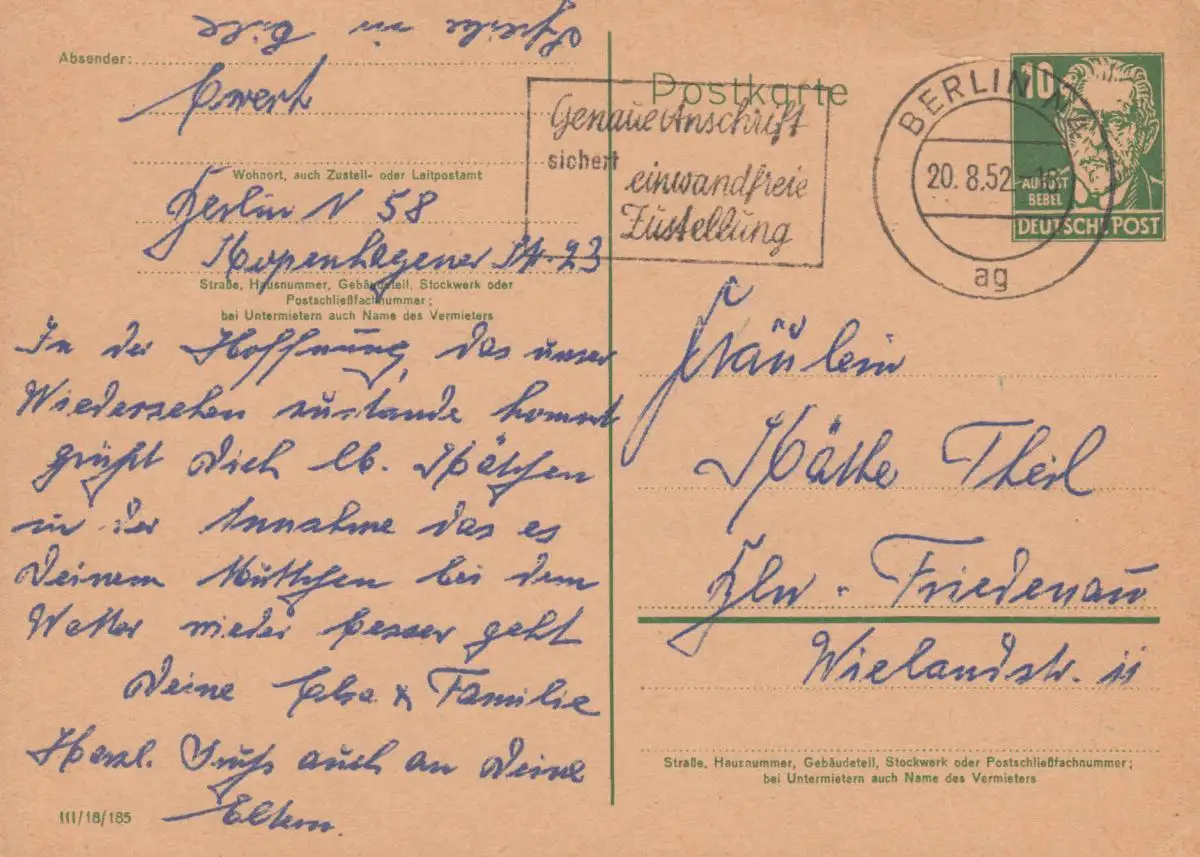 Schreibe in Eile
Absender:
Ewert
Wohnort, auch Zustell- oder Leitpostamt
Berlin N 58
Kopenhagener Str. 23
Straße, Hausnummer, Gebäudeteil, Stockwerk oder
Postschließfachnummer;
bei Untermietern auch Name des Vermieters
In der Hoffnung, das unser
Wiedersehen zustande kommt
grüßt Dich lb. Kätchen
in der Annahme das es
Deinem Muttchen bei dem
Wetter wieder besser geht
Deine Elsa & Familie
Herzl. Gruß auch an Deine
Eltern.
III/18/185
Postkarte
Genaue Anschrift
sichert
einwandfreie
Zustellung
BERLIN N4
20. 8.52
ag
10
AUGUST
BEBEL
DEUTSCHE POST
Fräulein
Käthe Theil
Bln - Friedenau
Wielandstr. 11
Straße, Hausnummer, Gebäudeteil, Stockwerk oder Postschließfachnummer;
bei Untermietern auch Name des Vermieters